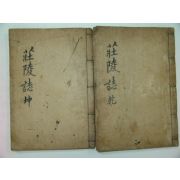 莊陵誌 乾
莊陵誌 坤